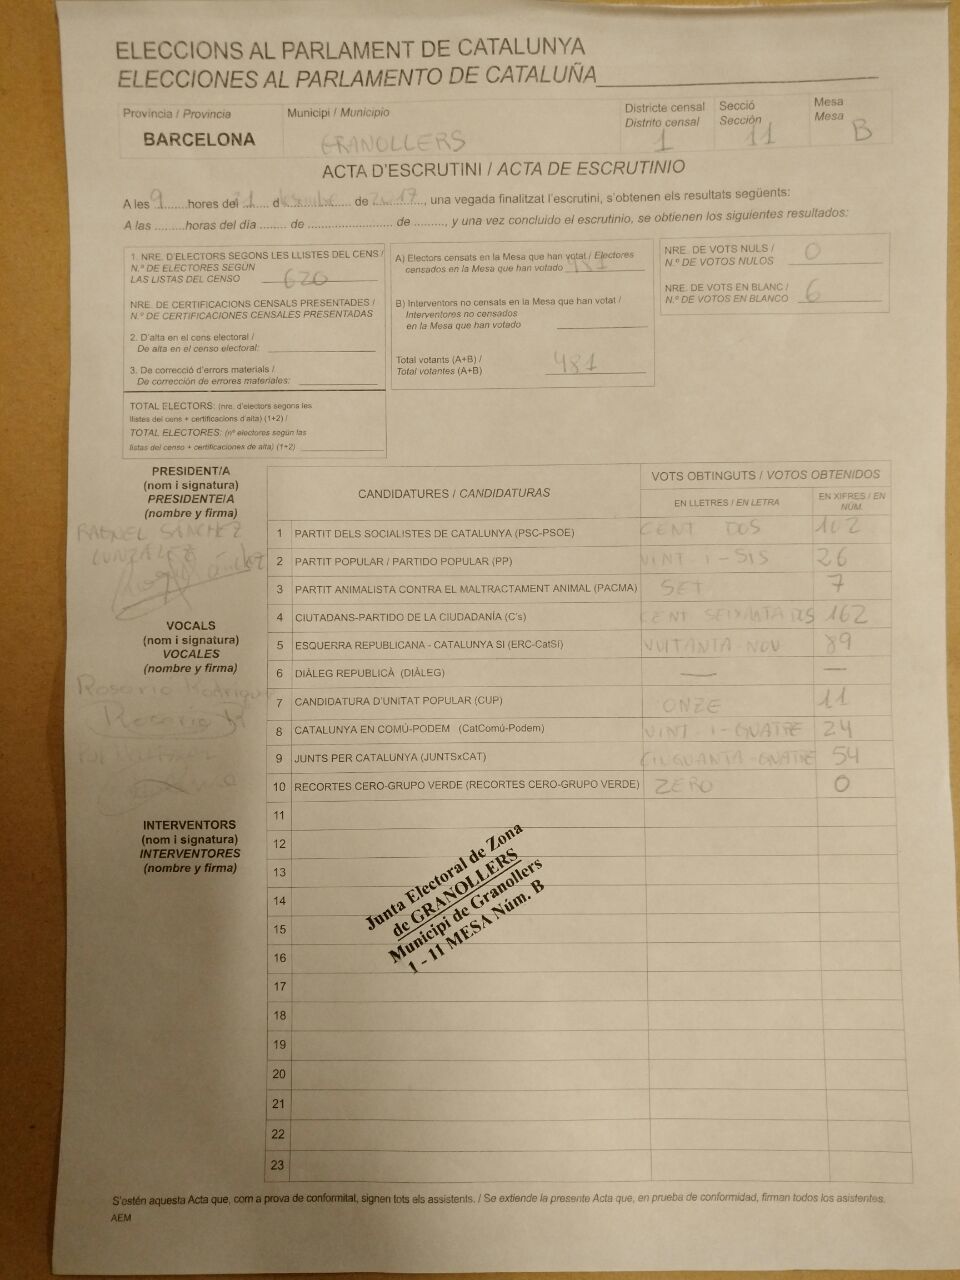 ELECCIONS AL PARLAMENT DE CATALUNYA
ELECCIONES AL PARLAMENTO DE CATALUÑA
Província / Provincia
BARCELONA
Municipi / Municipio
GRANOLLERS
Districte censal
Distrito censal
1
Secció
Sección
11
Mesa
Mesa
B
ACTA D'ESCRUTINI / ACTA DE ESCRUTINIO
A les 9 hores del 21 d de 2017, una vegada finalitzat l'escrutini, s'obtenen els resultats següents:
A las .........horas del día ....... de ....................... de ........., y una vez concluido el escrutinio, se obtienen los siguientes resultados:
1. NRE. D'ELECTORS SEGONS LES LLISTES DEL CENS /
N.º DE ELECTORES SEGÚN
LAS LISTAS DEL CENSO 620
NRE. DE CERTIFICACIONS CENSALS PRESENTADES /
N.º DE CERTIFICACIONES CENSALES PRESENTADAS
2. D'alta en el cens electoral /
De alta en el censo electoral:
3. De correcció d'errors materials /
De corrección de errores materiales:
TOTAL ELECTORS: (nre. d'electors segons les
llistes del cens + certificacions d'alta) (1+2) /
TOTAL ELECTORES: (nº electores según las
listas del censo + certificaciones de alta) (1+2)
A) Electors censats en la Mesa que han votat / Electores
censados en la Mesa que han votado 481
B) Interventors no censats en la Mesa que han votat /
Interventores no censados
en la Mesa que han votado
Total votants (A+B) /
Total votantes (A+B) 481
NRE. DE VOTS NULS /
N.º DE VOTOS NULOS 0
NRE. DE VOTS EN BLANC /
N.º DE VOTOS EN BLANCO 6
PRESIDENT/A
(nom i signatura)
PRESIDENTE/A
(nombre y firma)
RAQUEL SANCHEZ
GONZALEZ
VOCALS
(nom i signatura)
VOCALES
(nombre y firma)
Rosario Rodrigue
Rosario R
INTERVENTORS
(nom i signatura)
INTERVENTORES
(nombre y firma)
CANDIDATURES / CANDIDATURAS
VOTS OBTINGUTS / VOTOS OBTENIDOS
EN LLETRES / EN LETRA
EN XIFRES / EN NÚM.
1 PARTIT DELS SOCIALISTES DE CATALUNYA (PSC-PSOE) CENT DOS 102
2 PARTIT POPULAR / PARTIDO POPULAR (PP) VINT-I-SIS 26
3 PARTIT ANIMALISTA CONTRA EL MALTRACTAMENT ANIMAL (PACMA) SET 7
4 CIUTADANS-PARTIDO DE LA CIUDADANÍA (C's) CENT SEIXANTA DOS 162
5 ESQUERRA REPUBLICANA - CATALUNYA SI (ERC-CatSí) VUITANTA-NOU 89
6 DIÀLEG REPUBLICÀ (DIÀLEG) — —
7 CANDIDATURA D'UNITAT POPULAR (CUP) ONZE 11
8 CATALUNYA EN COMÚ-PODEM (CatComú-Podem) VINT-I-QUATRE 24
9 JUNTS PER CATALUNYA (JUNTSxCAT) CINQUANTA-QUATRE 54
10 RECORTES CERO-GRUPO VERDE (RECORTES CERO-GRUPO VERDE) ZERO 0
11
12
13
14
15
16
17
18
19
20
21
22
23
Junta Electoral de Zona
de GRANOLLERS
Municipi de Granollers
1 - 11 MESA Núm. B
S'estén aquesta Acta que, com a prova de conformitat, signen tots els assistents. / Se extiende la presente Acta que, en prueba de conformidad, firman todos los asistentes.
AEM